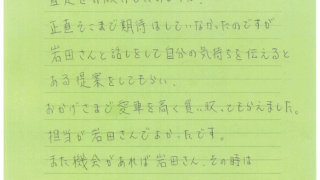 正直そこまで期待はしていなかったのですが
岩田さんと話しをして自分の気持ちを伝えると
ある提案をしてもらい、
おかげさまで愛車を高く買い取ってもらえました。
担当が岩田さんでよかったです。
また機会があれば岩田さん、その時は